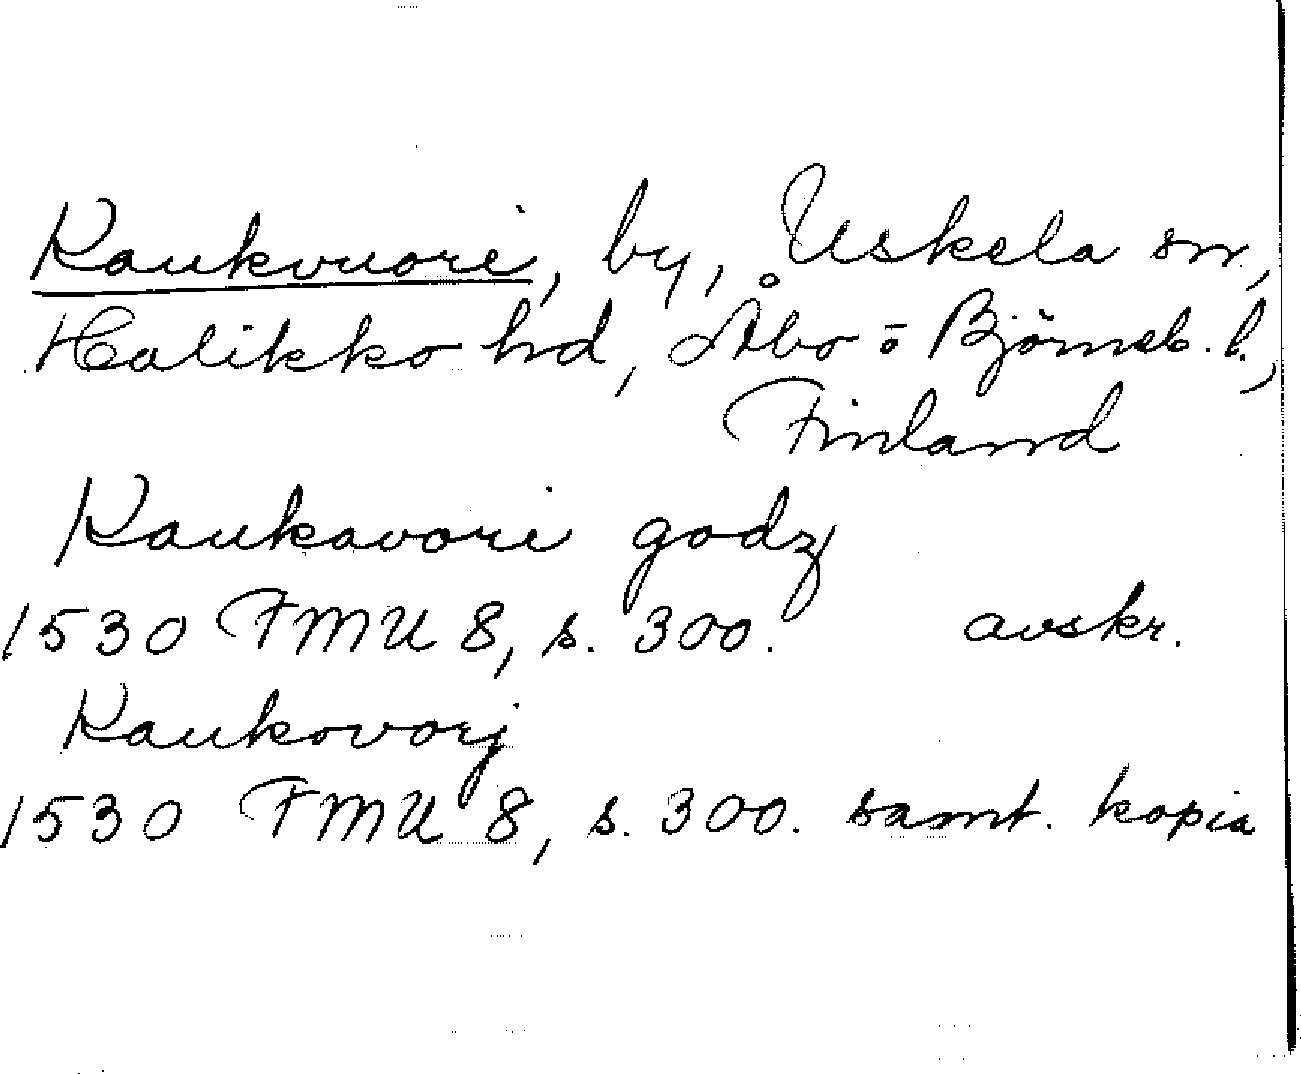 Kaukvuori, by, Uskela sn,
Halikko hd, Åbo o Björneb. l.,
Finland
Kaukavori godz
1530 FMU 8, s. 300. avskr.
Kaukovorj
1530 FMU 8, s. 300. samt. kopia